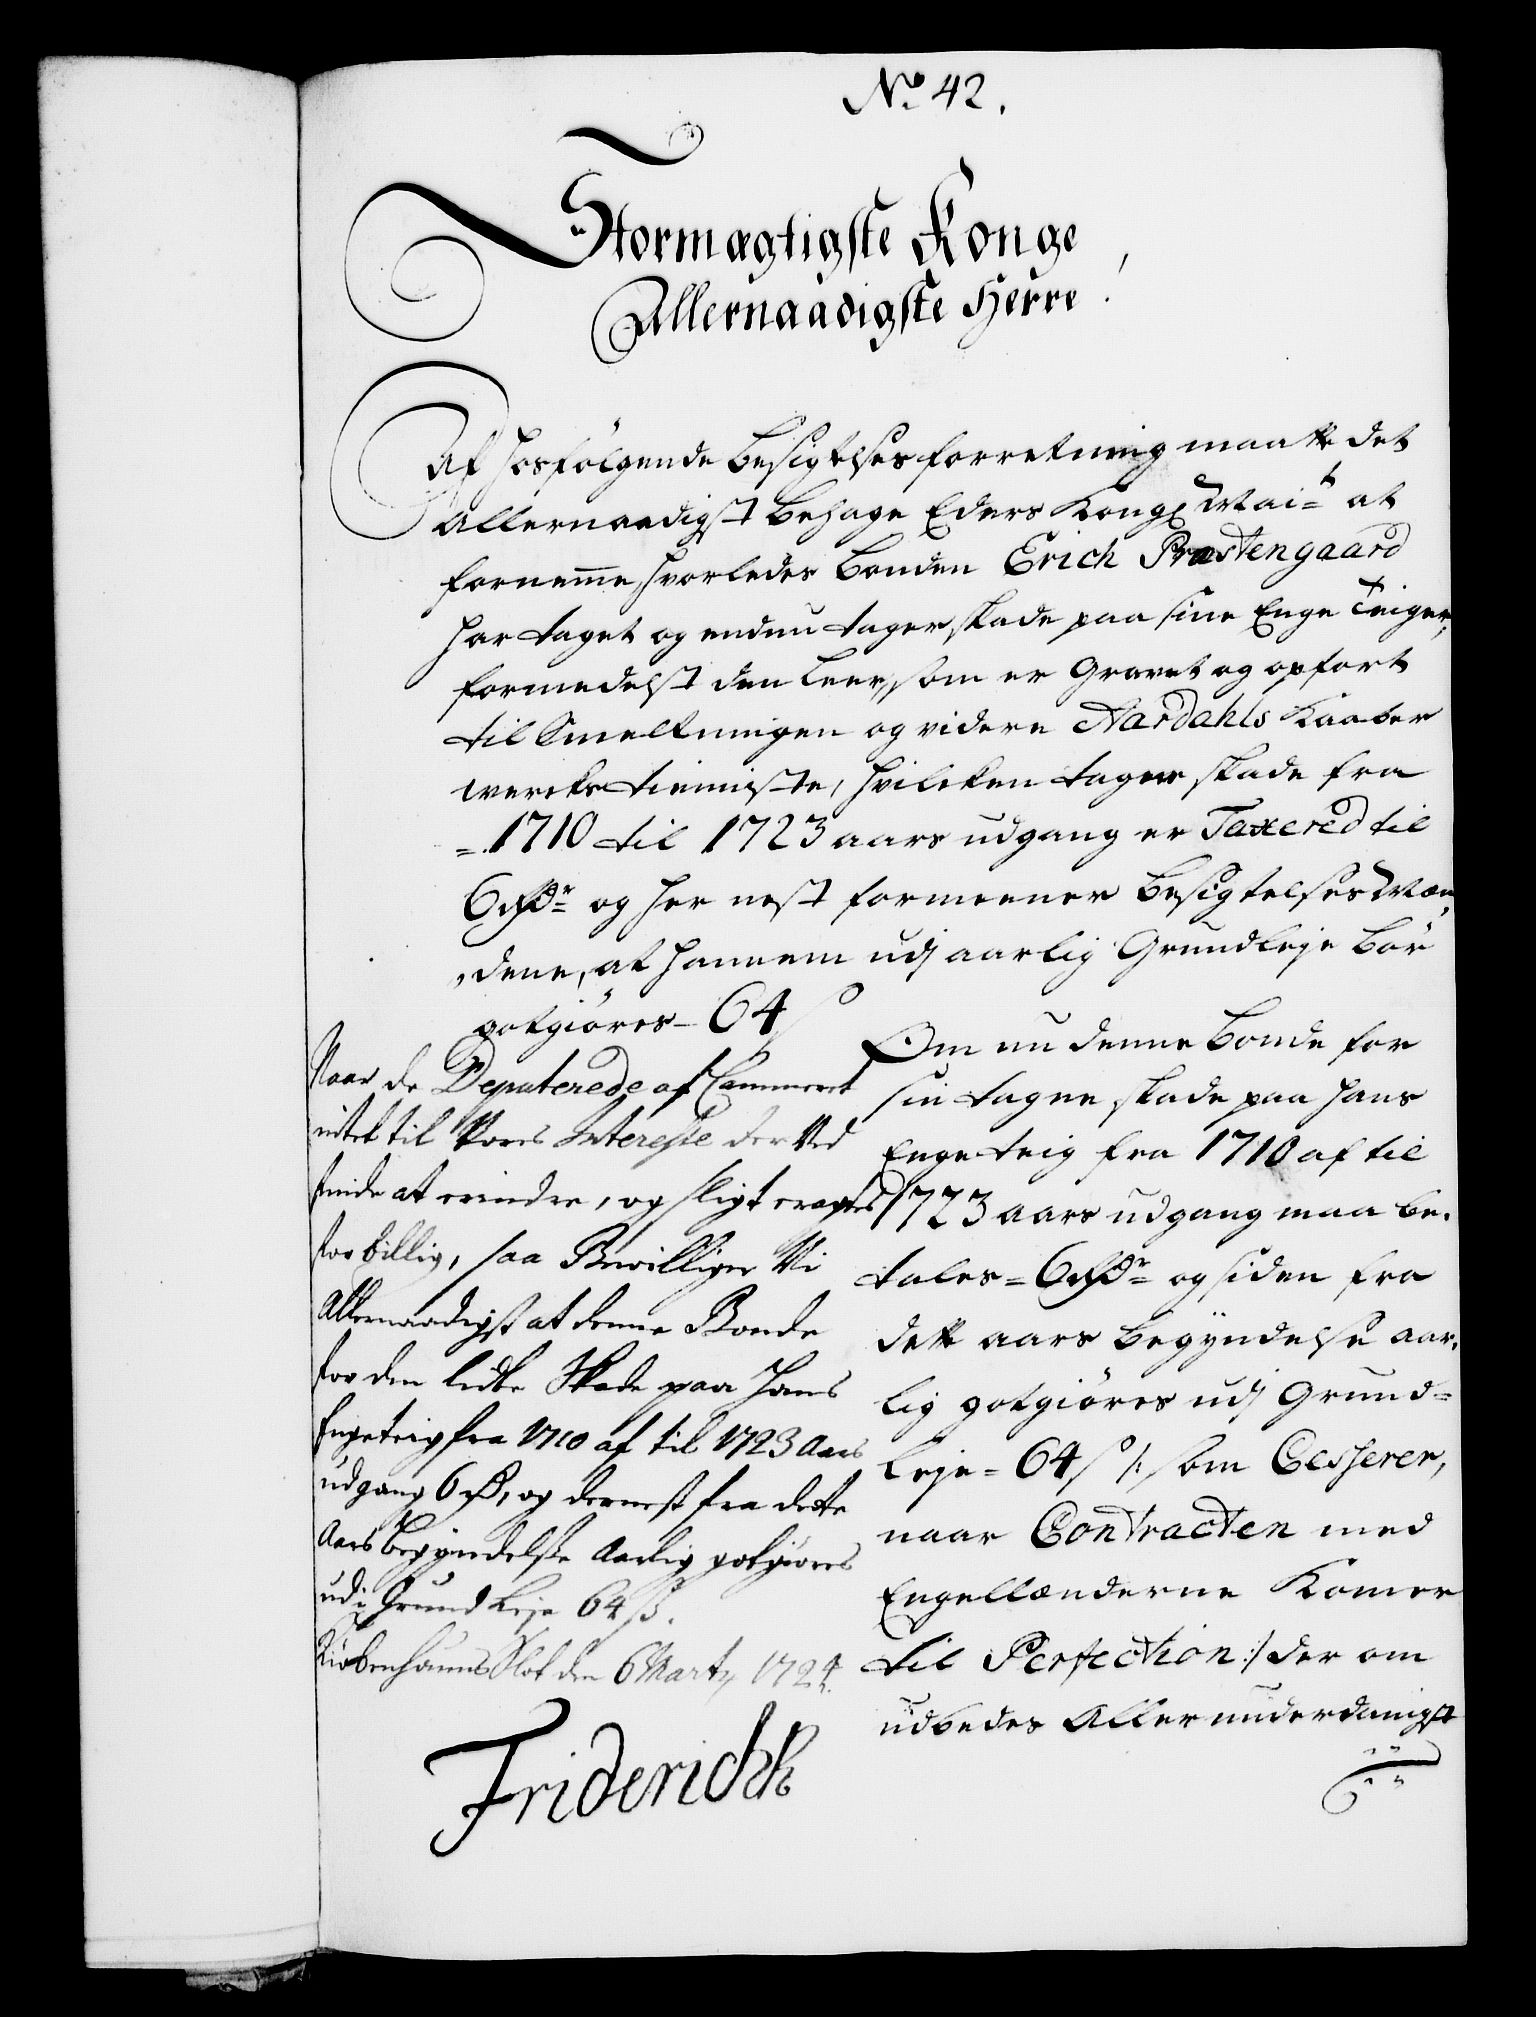 No 42.
Stormægtigste Konge
Allernaadigste Herre!
Af hosfölgende Besigtelses forretning maatte det
Allernaadigst behage Eders Kongl Mait at
fornemme, hvorledes bonden Erich Præstengaard
har taget og endnu tager skade paa sine Enge Teiger,
formedelst den leer, som er Gravet og opfört
til Smeltningen og videre Aardahls Kaaber
wercks tienniste, hvilcken tagen skade fra
=1710 til 1723 aars udgang er Taxered til
6 Rdr= og her nest formeener Besigtelses Mæn,
,dene, at hannem udj aarlig Grundleje bör
gotgiöres - 64 s
Om nu denne bonde for
sin tagne skade paa hans
Enge teig fra 1710 af til
1723 aars udgang maa be,
tales = 6 Rdr= og siden fra
dette aars begyndelse aar,
lig gotgiöres udj Grund=
leje = 64 s /: som Cesserer,
naar Contracten med
Engellænderne Komer
til Perfection :/ der om
udbedes Allerunderdanigst
Naar de Deputerede af Cammeret
intet til Vores Interesse der Ved
finde at erindre, og sligt eragtes
for billig, saa Bewilliger Vi
Allernaadigst at denne Bonde
for den lidte Skade paa hans
Engeteig fra 1710 af til 1723 Aars
udgang 6 Rd, og dernest fra dette
Aars begyndelse Aarlig gotgiöres
udi Grundleje 64 s.
Kiøbenhauns Slot den 6 Marty 1724.
Friderich R